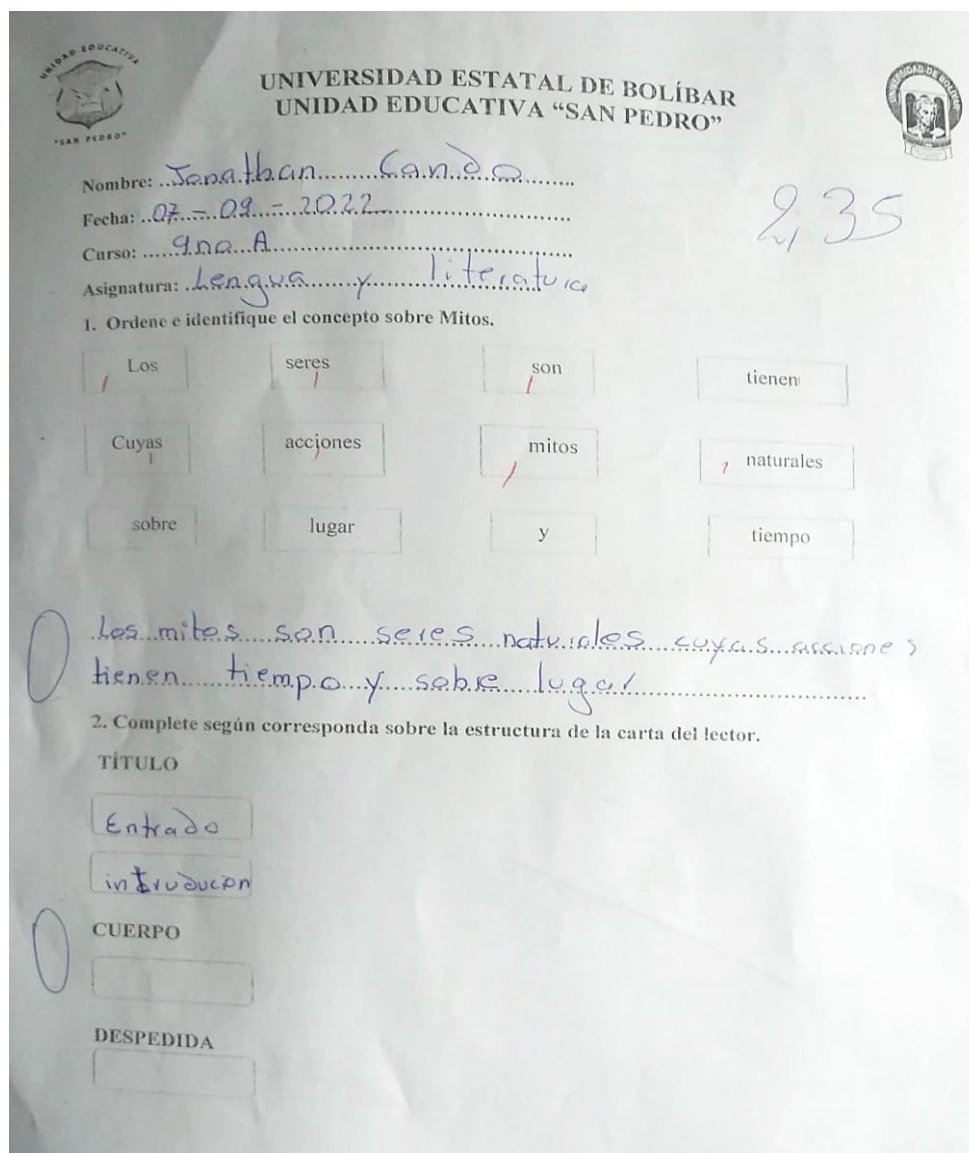 UNIDAD EDUCATIVA
"SAN PEDRO"
UNIVERSIDAD ESTATAL DE BOLÍBAR
UNIDAD EDUCATIVA “SAN PEDRO”
UNIVERSIDAD DE BOLIVAR
Nombre: Jonathan Cando
Fecha: 07 - 09 - 2022
Curso: 9no A
Asignatura: Lengua y literatura
2,35
1. Ordene e identifique el concepto sobre Mitos.
Los seres son tienen
Cuyas acciones mitos naturales
sobre lugar y tiempo
0
Los mitos son seres naturales cuyas acciones
tienen tiempo y sobre lugar
2. Complete según corresponda sobre la estructura de la carta del lector.
TÍTULO
Entrado
introducion
0
CUERPO
DESPEDIDA